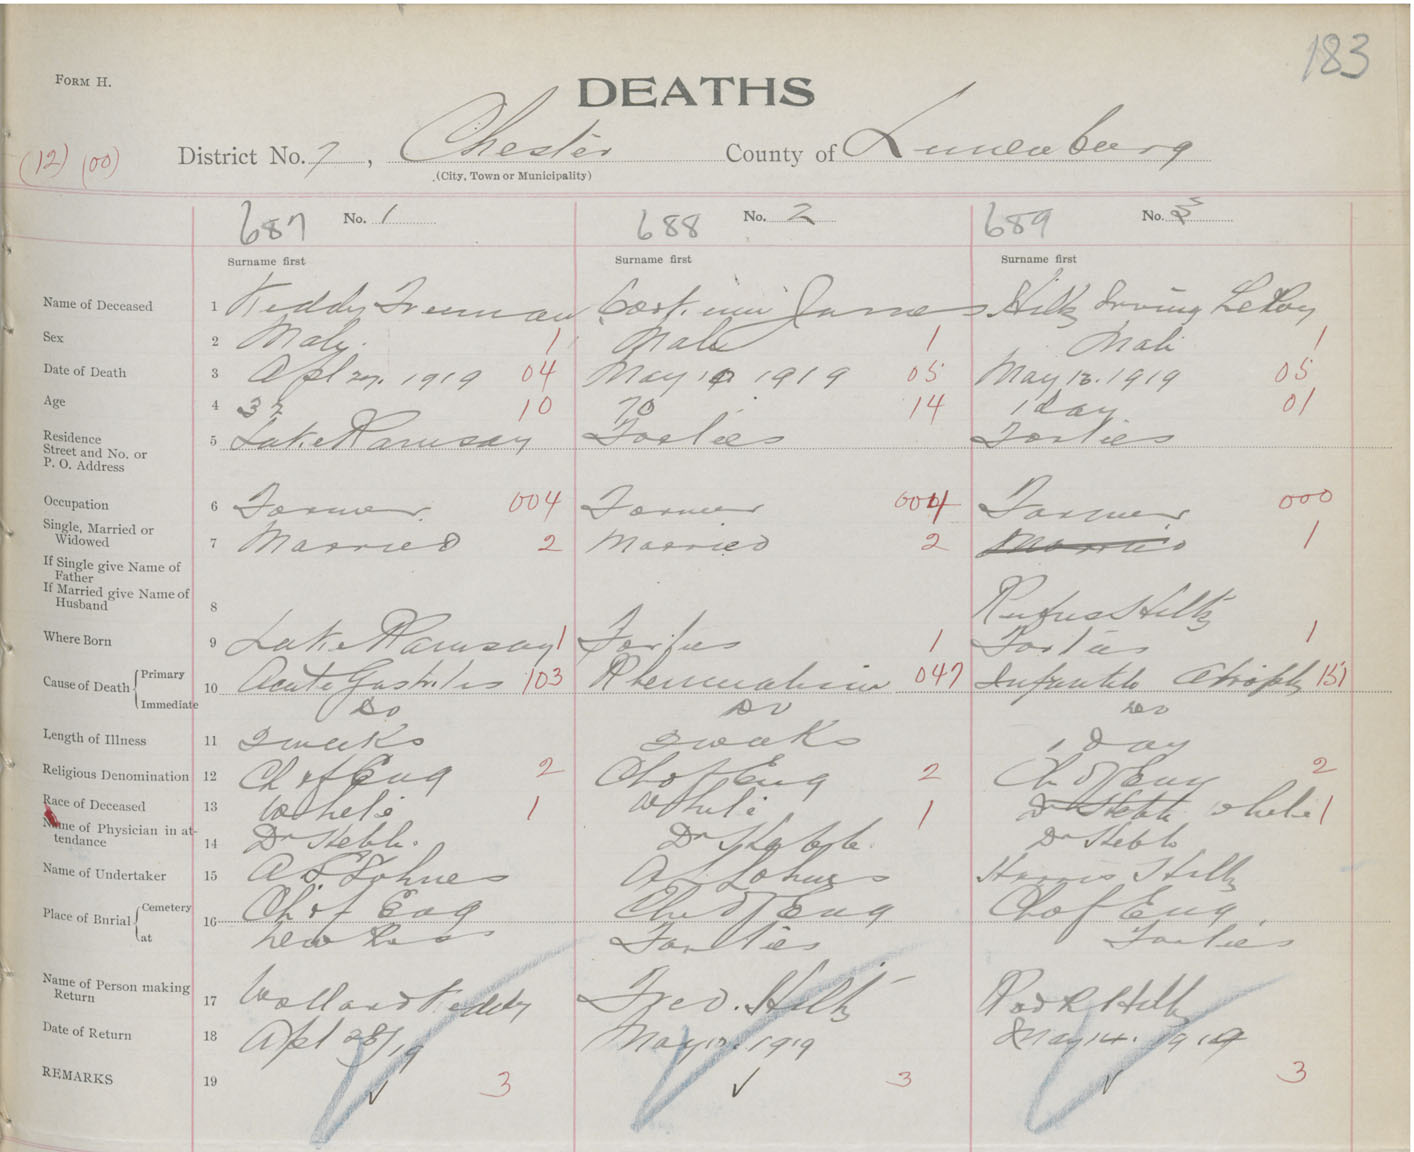 183
FORM H.
DEATHS
(12) (00)
District No. 7, Chester County of Lunenburg
(City, Town or Municipality)
687 No. 1 688 No. 2 689 No. 3
Surname first Surname first Surname first
Name of Deceased 1 Keddy Freeman James Hiltz Irving LeRoy
Sex 2 Male 1 Male 1 Male 1
Date of Death 3 Apl 27. 1919 04 May 1919 05 May 13. 1919 05
Age 4 32 10 70 14 1 day 01
Residence
Street and No. or
P. O. Address
5 Lake Ramsay Forties Forties
Occupation 6 Farmer 004 Farmer 004 Farmer 000
Single, Married or
Widowed
7 Married 2 Married 2 Married 1
If Single give Name of
Father
If Married give Name of
Husband
8 Rufus Hiltz
Where Born 9 Lake Ramsay 1 Forties 1 Forties 1
Cause of Death Primary
Immediate
10 Acute Gastritis 103 Rheumatism 047 Infantile Atrophy 151
Do Do Do
Length of Illness 11 2 weeks 2 weeks 1 Day
Religious Denomination 12 Ch of Eng 2 Ch of Eng 2 Ch of Eng 2
Race of Deceased 13 White 1 White 1 Dr Hebb White 1
Name of Physician in at-
tendance
14 Dr Hebb. Dr Hebb. Dr Hebb
Name of Undertaker 15 A L Lohnes A L Lohnes Harris Hiltz
Place of Burial Cemetery
at
16 Ch of Eng Ch of Eng Ch of Eng.
New Ross Forties Forties
Name of Person making
Return
17 Wollard Keddy Fred. Hiltz Hiltz
Date of Return 18 Apl 28/19 May 12. 1919 May 14. 1919
REMARKS 19 3 3 3